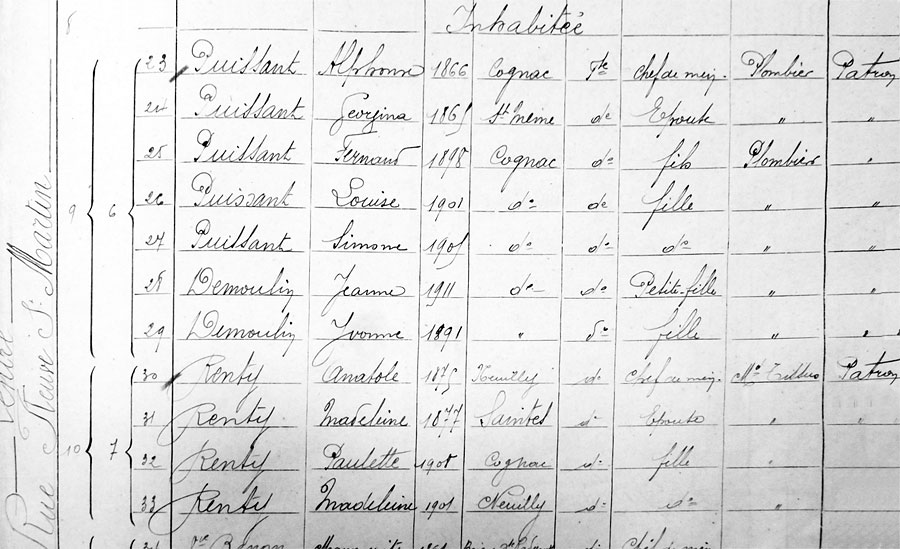 8 Inhabitée
23 Puissant Alphonse 1866 Cognac Fse chef de mén. Plombier Patron
24 Puissant Georgina 1865 St Même do Epouse " "
25 Puissant Fernand 1898 Cognac do fils Plombier "
9 6 26 Puissant Louise 1901 do do fille " "
27 Puissant Simone 1905 do do do " "
28 Demoulin Jeanne 1911 do do Petite-fille " "
29 Demoulin Yvonne 1891 " do fille " "
30 Renty Anatole 1875 Neuilly do chef de mén. Md Patron
31 Renty Madeleine 1877 Saintes d Epouse "
10 7 32 Renty Paulette 1908 Cognac d fille "
33 Renty Madeleine 1901 Neuilly d do "
34 Vve chef de mén
Rue St Martin